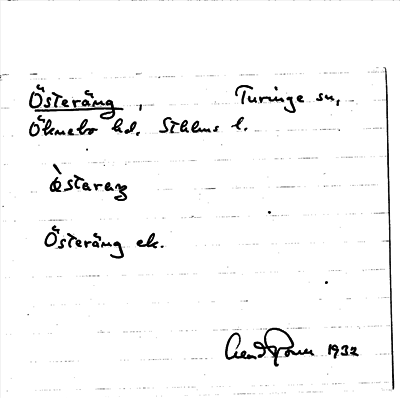 Österäng, Turinge sn,
Öknebo hd. Sthlms l.
ǿ̀staraŋ
Österäng ek.
1932